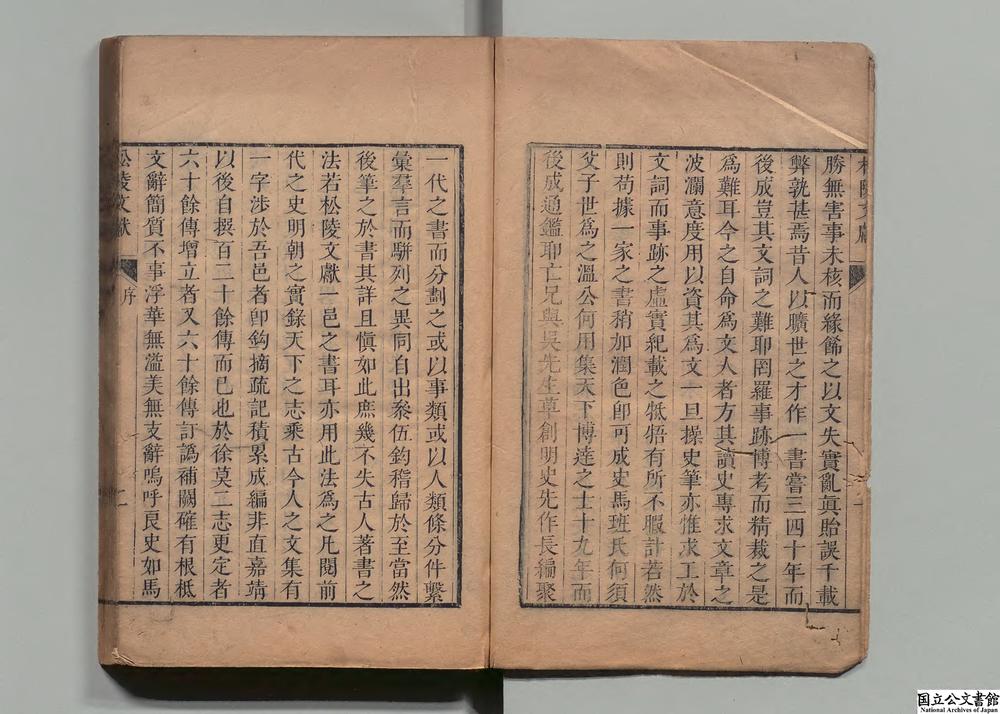 松陵文獻
勝無害事未核而緣餙之以文失實亂真貽誤千載
弊孰甚焉昔人以曠世之才作一書嘗三四十年而
後成豈其文詞之難耶罔羅事跡博考而精裁之是
為難耳今之自命為文人者方其讀史專求文章之
波瀾意度用以資其為文一旦操史筆亦惟求工於
文詞而事跡之虛實紀載之牴牾有所不暇計若然
則苟據一家之書稍加潤色即可成史馬班氏何須
父子世為之溫公何用集天下博達之士十九年而
後成通鑑耶亡兄與吳先生草創明史先作長編聚
一代之書而分劃之或以事類或以人類條分件繫
彙羣言而駢列之異同自出叅伍鈎稽歸於至當然
後筆之於書其詳且慎如此庶幾不失古人著書之
法若松陵文獻一邑之書耳亦用此法為之凡閱前
代之史明朝之實錄天下之志乘古今人之文集有
一字涉於吾邑者即鈎摘疏記積累成編非直嘉靖
以後自撰百二十餘傳而已也於徐莫二志更定者
六十餘傳增立者又六十餘傳訂譌補闕確有根柢
文辭簡質不事浮華無溢美無支辭嗚呼良史如馬
松陵文獻
序
二
国立公文書館
National Archives of Japan